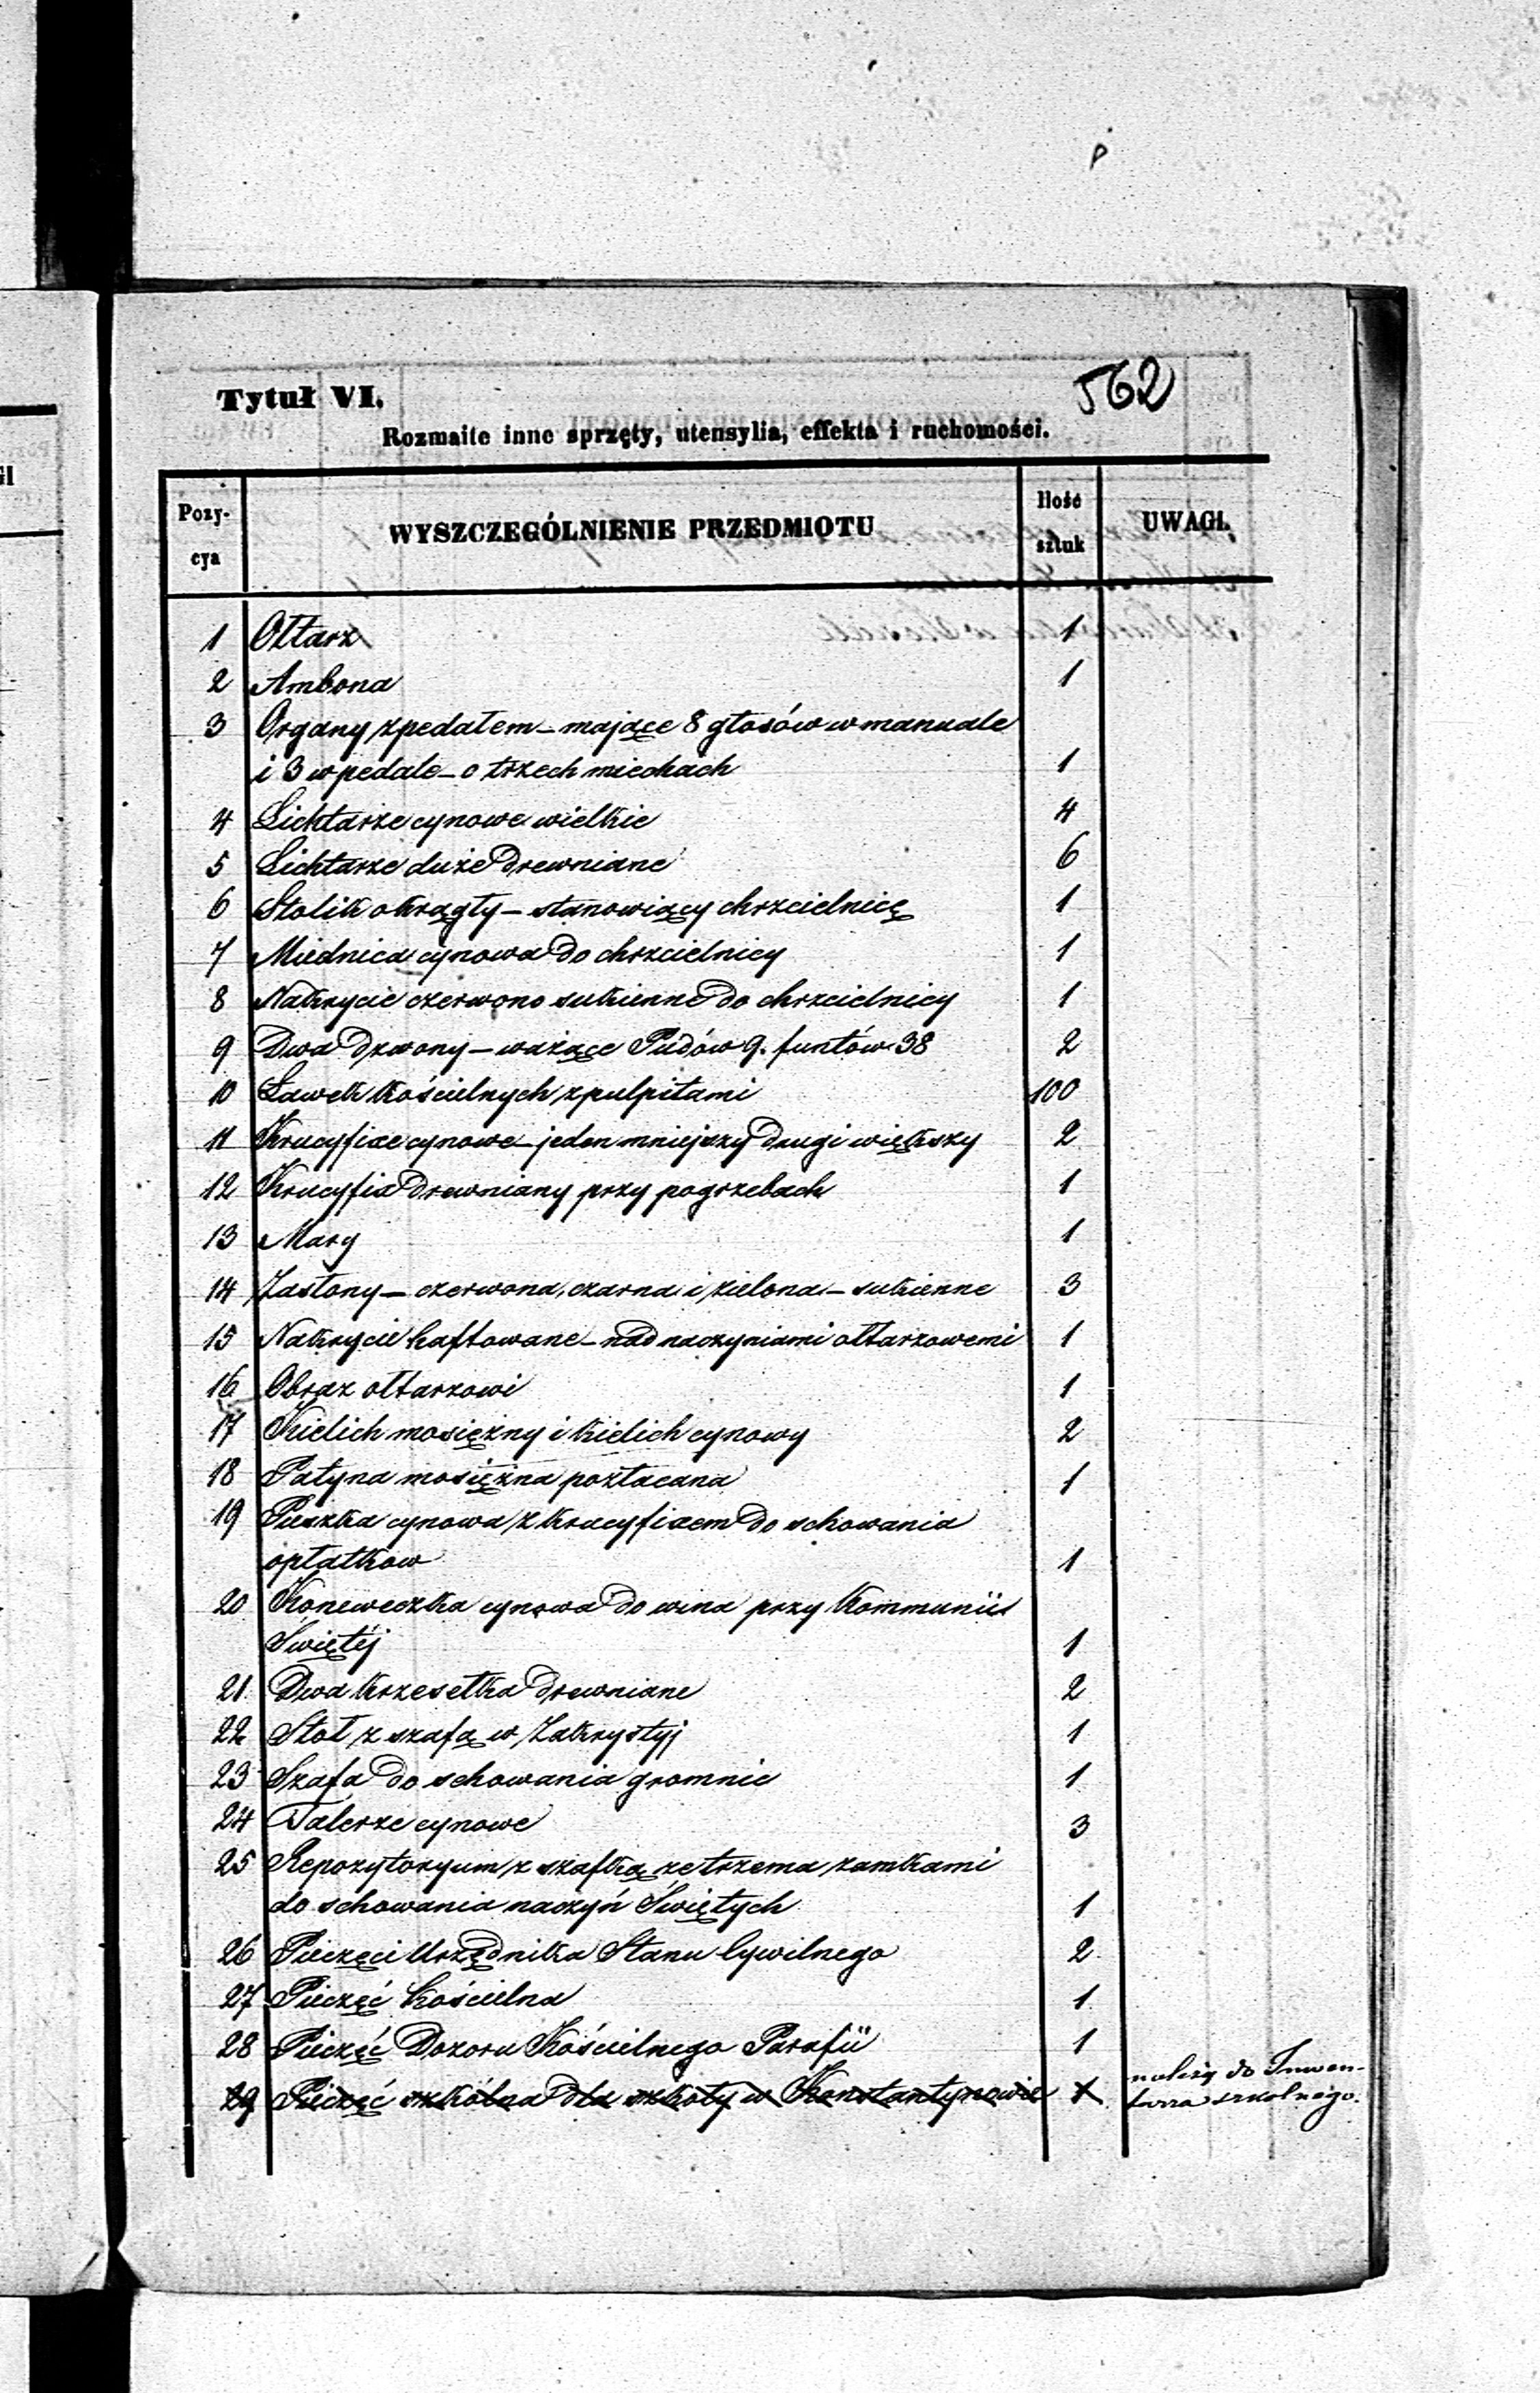 562
Tytuł VI.
Rozmaite inne sprzęty, utensylia, effekta i ruchomości.
Pozy-cya WYSZCZEGÓLNIENIE PRZEDMIOTU Ilość sztuk UWAGI.
1 Ołtarz 1
2 Ambona 1
3 Organy z pedałem – mające 8 głosów w manuale
i 3 w pedale – o trzech miechach 1
4 Lichtarze cynowe wielkie 4
5 Lichtarze duże drewniane 6
6 Stolik okrągły – stanowiący chrzcielnicę 1
7 Miednica cynowa do chrzcielnicy 1
8 Nakrycie czerwono sukienne do chrzcielnicy 1
9 Dwa dzwony – ważące Pudów 9. funtów 38 2
10 Ławek kościelnych z pulpitami 100
11 Krucyfixe cynowe – jeden mniejszy drugi większy 2
12 Krucyfix drewniany przy pogrzebach 1
13 Mary 1
14 Zasłony – czerwona, czarna i zielona – sukienne 3
15 Nakrycie haftowane – nad naczyniami ołtarzowemi 1
16 Obraz ołtarzowi 1
17 Kielich mosiężny i kielich cynowy 2
18 Patyna mosiężna pozłacana 1
19 Puszka cynowa z krucyfixem do schowania
opłatkow 1
20 Koneweczka cynowa do wina przy Kommunii
Świętéj 1
21. Dwa krzesełka drewniane 2
22 Stoł z szafą w Zakrystyj 1
23 Szafa do schowania gromnic 1
24 Talerze cynowe 3
25 Repozytoryum z szafką ze trzema zamkami
do schowania naczyń Świętych 1
26 Pieczęci Urzędnika Stanu Cywilnego 2
27 Pieczęć Kościelna 1
28 Pieczęć Dozoru Kościelnego Parafii 1
29 Pieczęć szkólna dla szkoły w Konstantynowie 1 należy do Inwen-
tarza szkolnego.